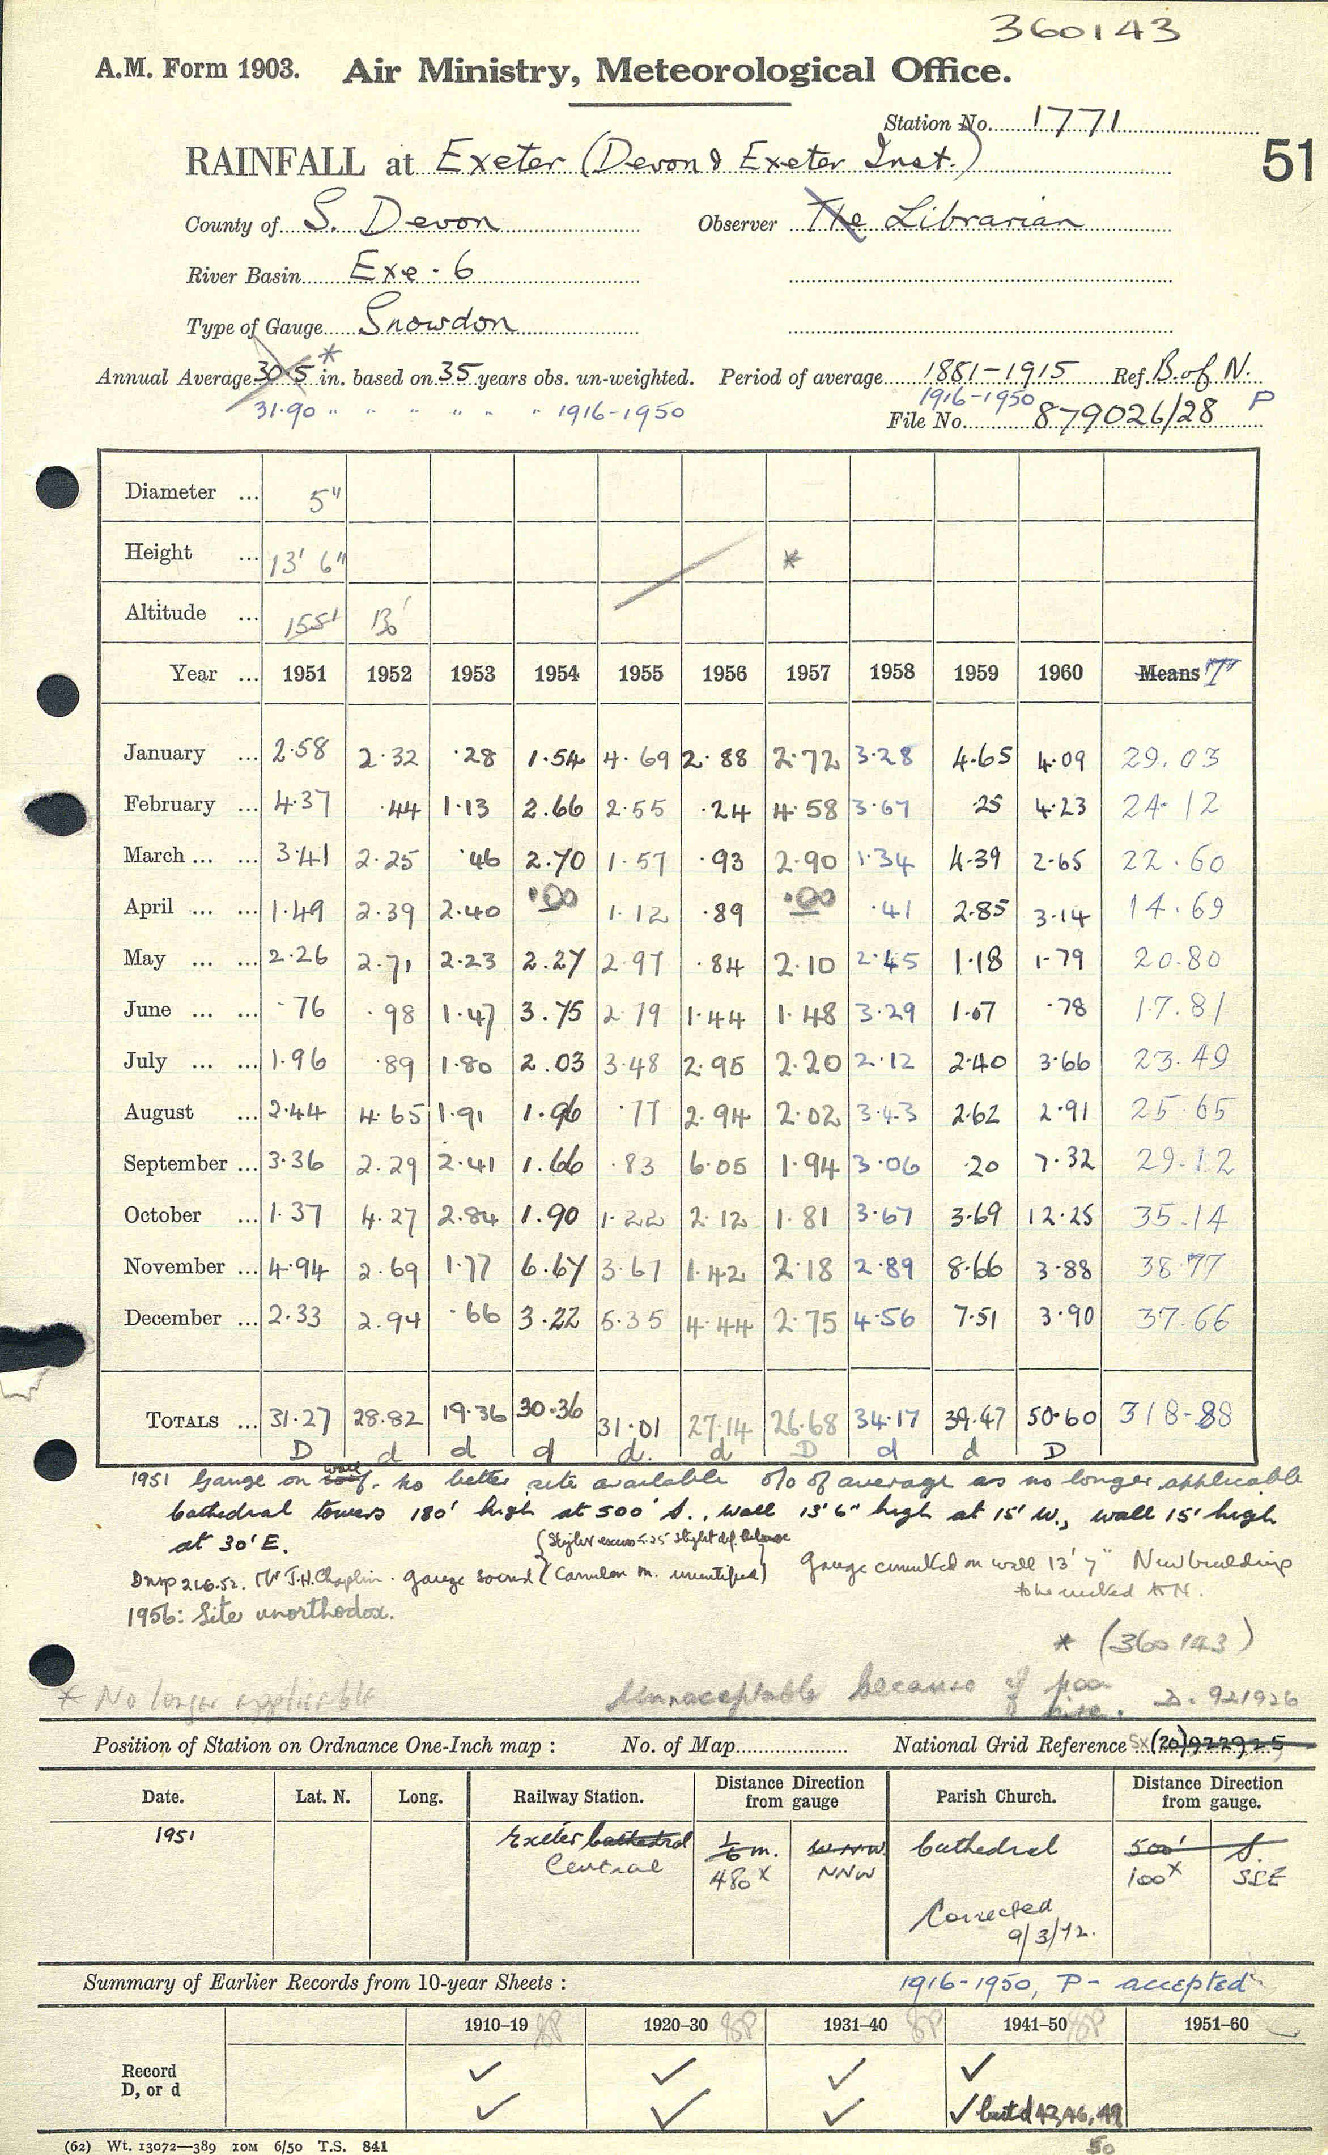 360143
A.M. Form 1903. Air Ministry, Meteorological Office.
Station No. 1771
51
RAINFALL at Exeter (Devon & Exeter Inst.)
County of S. Devon Observer The Librarian
River Basin Exe - 6
Type of Gauge Snowdon
Annual Average 30.5 * in. based on 35 years obs. un-weighted. Period of average 1881-1915 Ref. B. of N.
31.90 " " " " " " 1916-1950 1916-1950 P
File No. 879026/28
Diameter ... 5"
Height ... 13' 6" *
Altitude ... 155' 130'
Year ... 1951 1952 1953 1954 1955 1956 1957 1958 1959 1960 Means "T"
January ... 2.58 2.32 .28 1.54 4.69 2.88 2.72 3.28 4.65 4.09 29.03
February ... 4.37 .44 1.13 2.66 2.55 .24 4.58 3.67 .25 4.23 24.12
March ... ... 3.41 2.25 .46 2.70 1.57 .93 2.90 1.34 4.39 2.65 22.60
April ... ... 1.49 2.39 2.40 .00 1.12 .89 .00 .41 2.85 3.14 14.69
May ... ... 2.26 2.71 2.23 2.27 2.97 .84 2.10 2.45 1.18 1.79 20.80
June ... ... .76 .98 1.47 3.75 2.79 1.44 1.48 3.29 1.07 .78 17.81
July ... ... 1.96 .89 1.80 2.03 3.48 2.95 2.20 2.12 2.40 3.66 23.49
August ... 2.44 4.65 1.91 1.96 .77 2.94 2.02 3.43 2.62 2.91 25.65
September ... 3.36 2.29 2.41 1.66 .83 6.05 1.94 3.06 .20 7.32 29.12
October ... 1.37 4.27 2.84 1.90 1.22 2.12 1.81 3.67 3.69 12.25 35.14
November ... 4.94 2.69 1.77 6.67 3.67 1.42 2.18 2.89 8.66 3.88 38.77
December ... 2.33 2.94 .66 3.22 5.35 4.44 2.75 4.56 7.51 3.90 37.66
TOTALS ... 31.27 28.82 19.36 30.36 31.01 27.14 26.68 34.17 39.47 50.60 318.88
D d d d d. d D d d D
1951 Gauge on roof. wall no better site available % of average as no longer applicable
Cathedral towers 180' high at 500' S., wall 13'6" high at 15' W., wall 15' high
at 30' E.
Insp 21.6.52. Mr J.H. Chaplin. gauge sound (Camden m. uncertified) Gauge mounted on wall 13' 7" New building
to be erected to N.
1956: Site unorthodox.
* (360143)
* No longer applicable Unacceptable because of poor site. D. 921926
Position of Station on Ordnance One-Inch map : No. of Map National Grid Reference SX (20) 922925
Date. Lat. N. Long. Railway Station. Distance Direction from gauge Parish Church. Distance Direction from gauge.
1951 Exeter Cathedral 1/6 m. WNW Cathedral 500' S.
Central 480x NNW 100x SSE
Corrected
9/3/72.
Summary of Earlier Records from 10-year Sheets : 1916-1950, P - accepted
1910-19 1920-30 1931-40 1941-50 1951-60
Record
D, or d
but d 43,46,49
50
(62) Wt. 13072—389 10M 6/50 T.S. 841